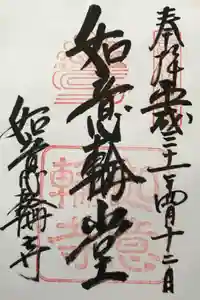 奉拝 平成三十一年四月十二日
如意輪堂
如意輪寺
如意輪寺